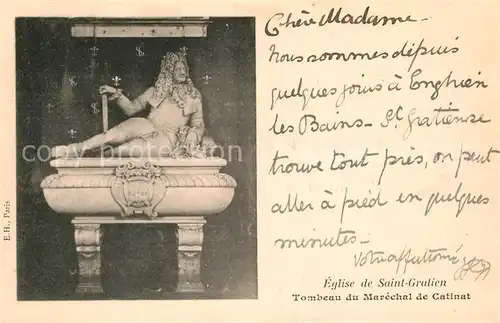 Chère Madame -
Nous sommes depuis
quelques jours à Enghien
les Bains - St. Gratien se
trouve tout près, on peut
aller à pied en quelques
minutes -
Votre affectionné
Église de Saint-Gratien
Tombeau du Maréchal de Catinat
E.H., Paris